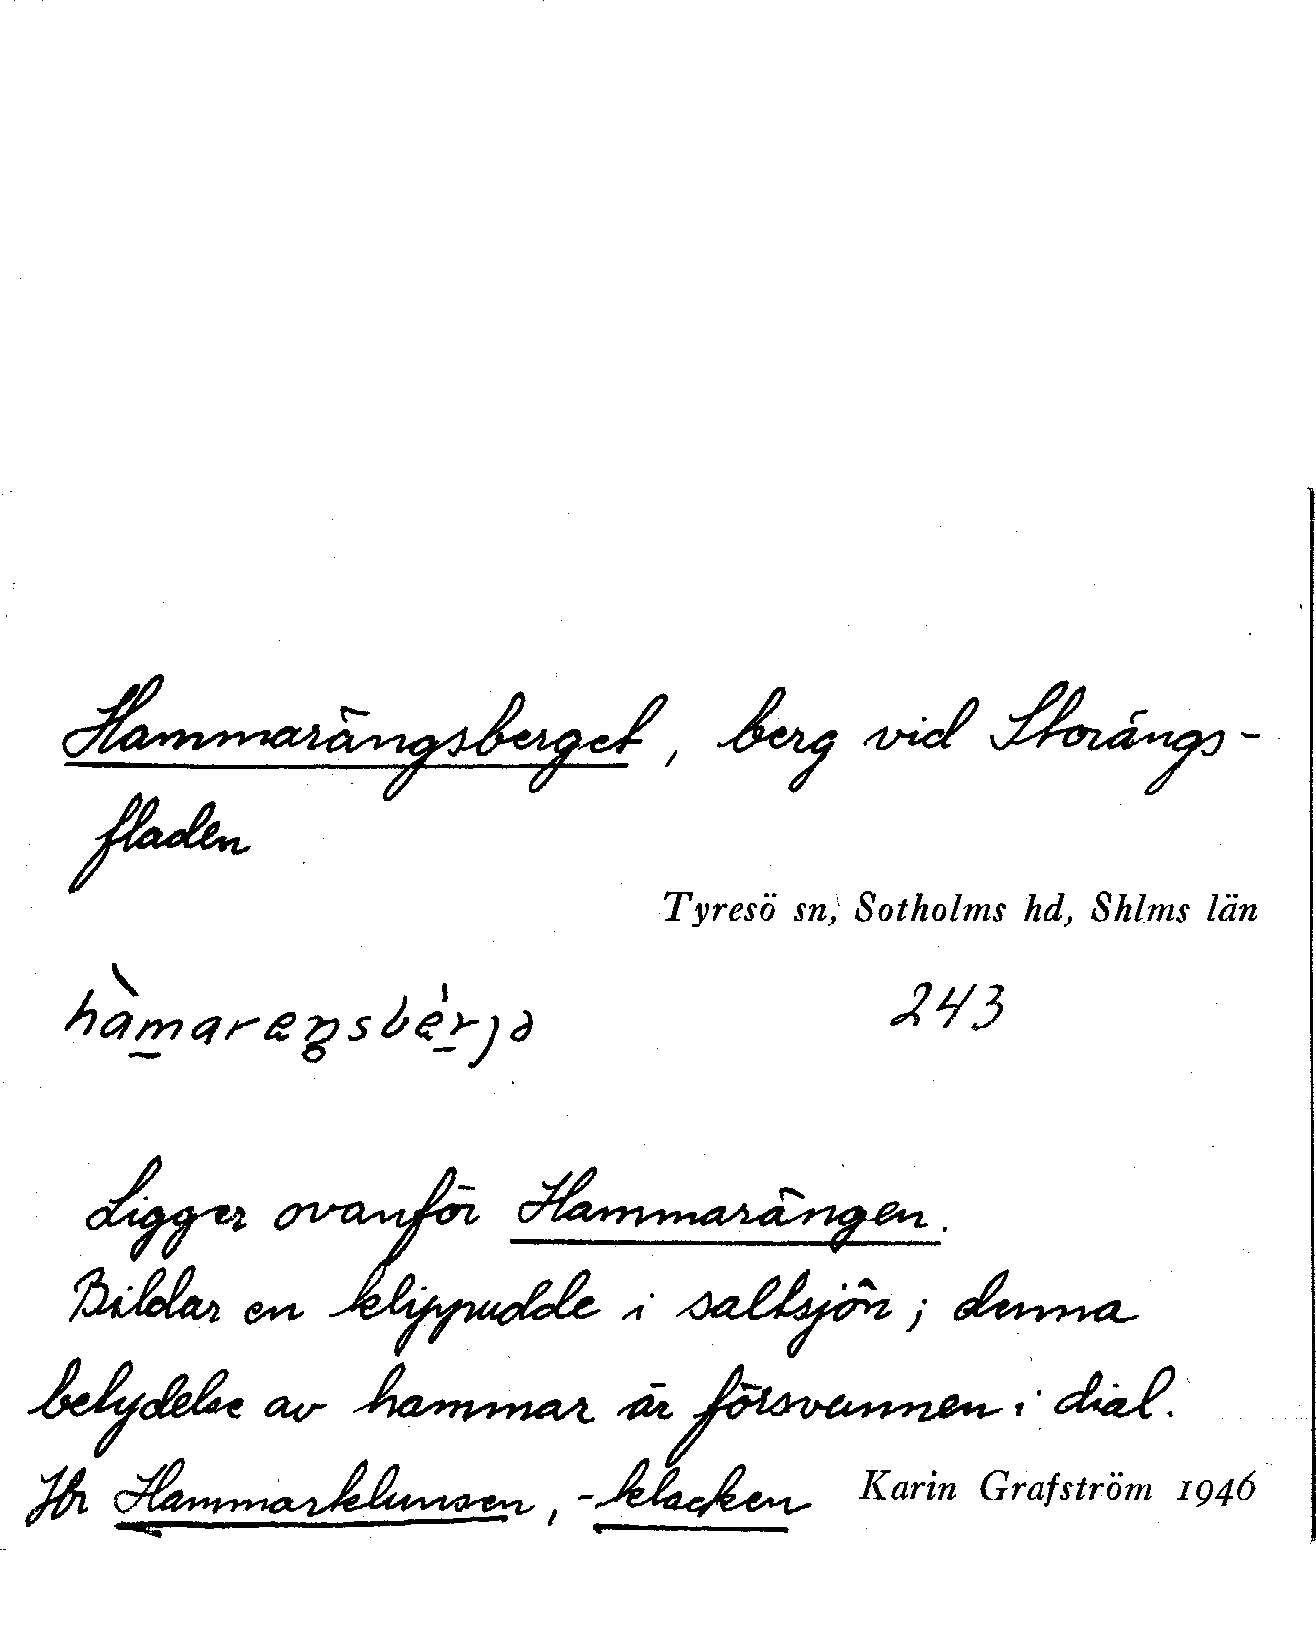 Hammarängsberget, berg vid Storängs-
fladen
Tyresö sn, Sotholms hd, Shlms län
hàmareŋsbérjə 243
Ligger ovanför Hammarängen.
Bildar en klippudde i saltsjön; denna
betydelse av hammar är försvunnen i dial.
Jfr Hammarklunsen, -klacken Karin Grafström 1946